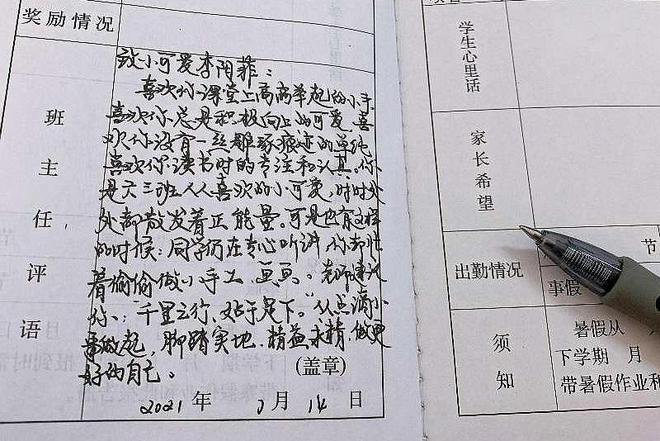 奖励情况
班主任评语
致小可爱李阳菲：
喜欢你课堂上高高举起的小手
喜欢你总是积极向上的可爱，喜
欢你没有一丝雕琢痕迹的单纯
喜欢你读书时的专注和认真。你
是六三班人人喜欢的小可爱，时时处
处都散发着正能量。可是也有这样
的时候：同学们在专心听讲，你却忙
着偷偷做小手工，画画。老师建议
你：“千里之行，始于足下。”从点滴小
事做起，脚踏实地，精益求精，做更
好的自己。
(盖章)
2021年 7月 14日
学生心里话
家长希望
出勤情况
节
事假
须知
暑假从 月
下学期 月
带暑假作业和